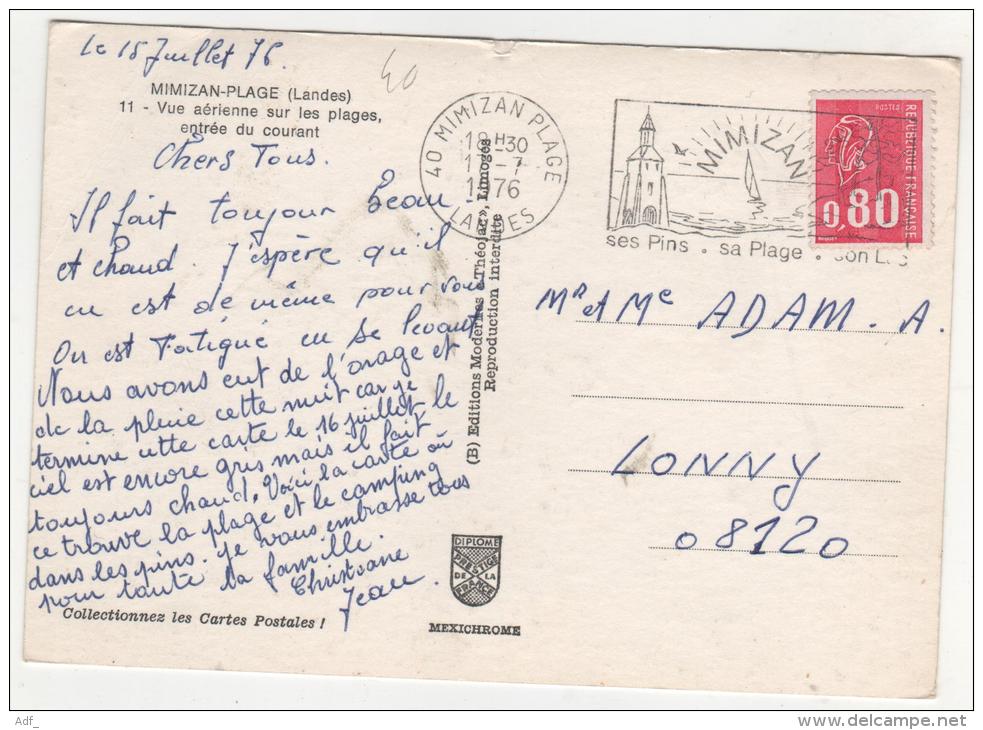 Le 15 Juillet 76.
40
MIMIZAN-PLAGE (Landes)
11 - Vue aérienne sur les plages,
entrée du courant
Chers Tous.
Il fait toujour beau
et chaud. J'espère qu'il
en est de même pour vous
On est Fatigué en se levant
Nous avons eut de l'orage et
de la pluie cette nuit car je
termine cette carte le 16 juillet le
ciel est encore gris mais il fait
toujours chaud. Voici la carte où
ce trouve la plage et le camping
dans les pins. je vous embrasse tous
pour toute la famille.
Christiane
Jean.
Collectionnez les Cartes Postales !
(B) Editions Modernes « Théojac », Limoges
Reproduction interdite
DIPLOME
PRESTIGE
DE LA
FRANCE
MEXICHROME
40 MIMIZAN PLAGE
18H30
-7
1976
LANDES
MIMIZAN
ses Pins . sa Plage . son Lac
POSTES
REPUBLIQUE FRANÇAISE
0,80
Mr et Me ADAM. A.
LONNY
08120
Adf_
delcampe.net